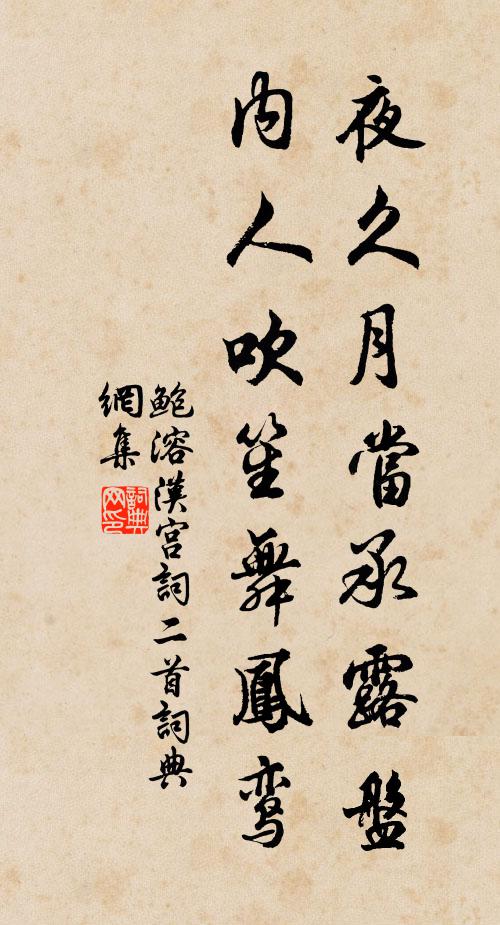 夜久月當承露盤
内人吹笙舞鳳鸾
鲍溶漢宫詞二首詞典
網集
詞典
网印